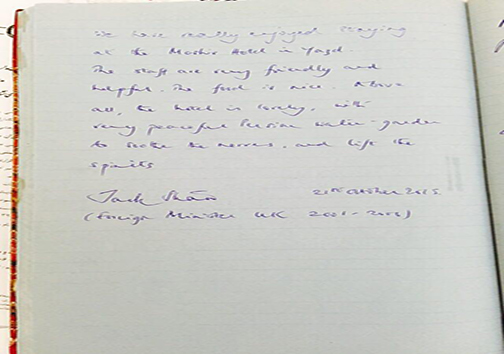 We have really enjoyed staying
at the Moshir Hotel in Yazd.
The staff are very friendly and
helpful. The food is nice. Above
all, the hotel is lovely, with
very peaceful Persian water-garden
to soothe the nerves, and lift the
spirits
Jack Straw 21st October 2015.
(Foreign Minister UK 2001-2006)